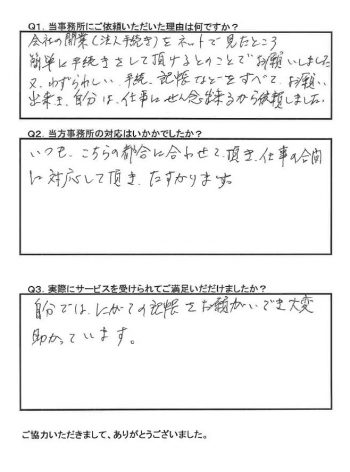 Q1. 当事務所にご依頼いただいた理由は何ですか？
会社の開業(法人手続き)をネットで見たところ
簡単に手続きをして頂けるとのことでお願いしました
又、わずらわしい、手続、記帳などをすべて、お願い
出来き、自分は、仕事にせん念出来るから依頼しました。
Q2. 当方事務所の対応はいかかでしたか？
いつも、こちらの都合に合わせて、頂き、仕事の合間
に対応して頂き、たすかります。
Q3. 実際にサービスを受けられてご満足いただだけましたか？
自分では、にがての記帳をお願がいでき大変
助かっています。
ご協力いただきまして、ありがとうございました。